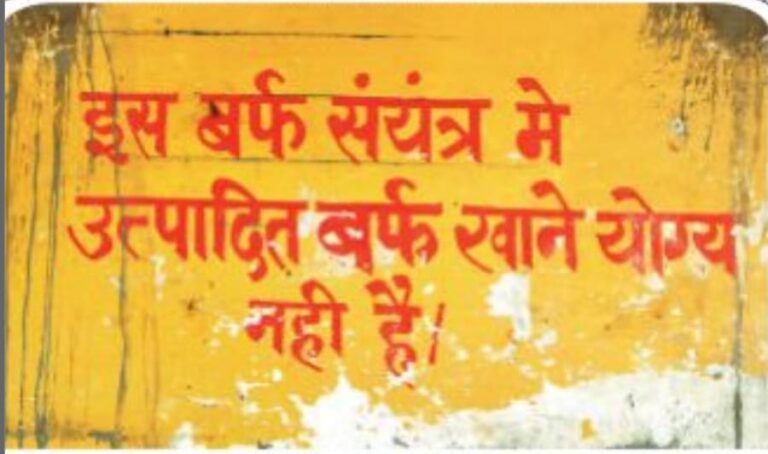 इस बर्फ संयंत्र मे
उत्पादित बर्फ खाने योग्य
नही है।